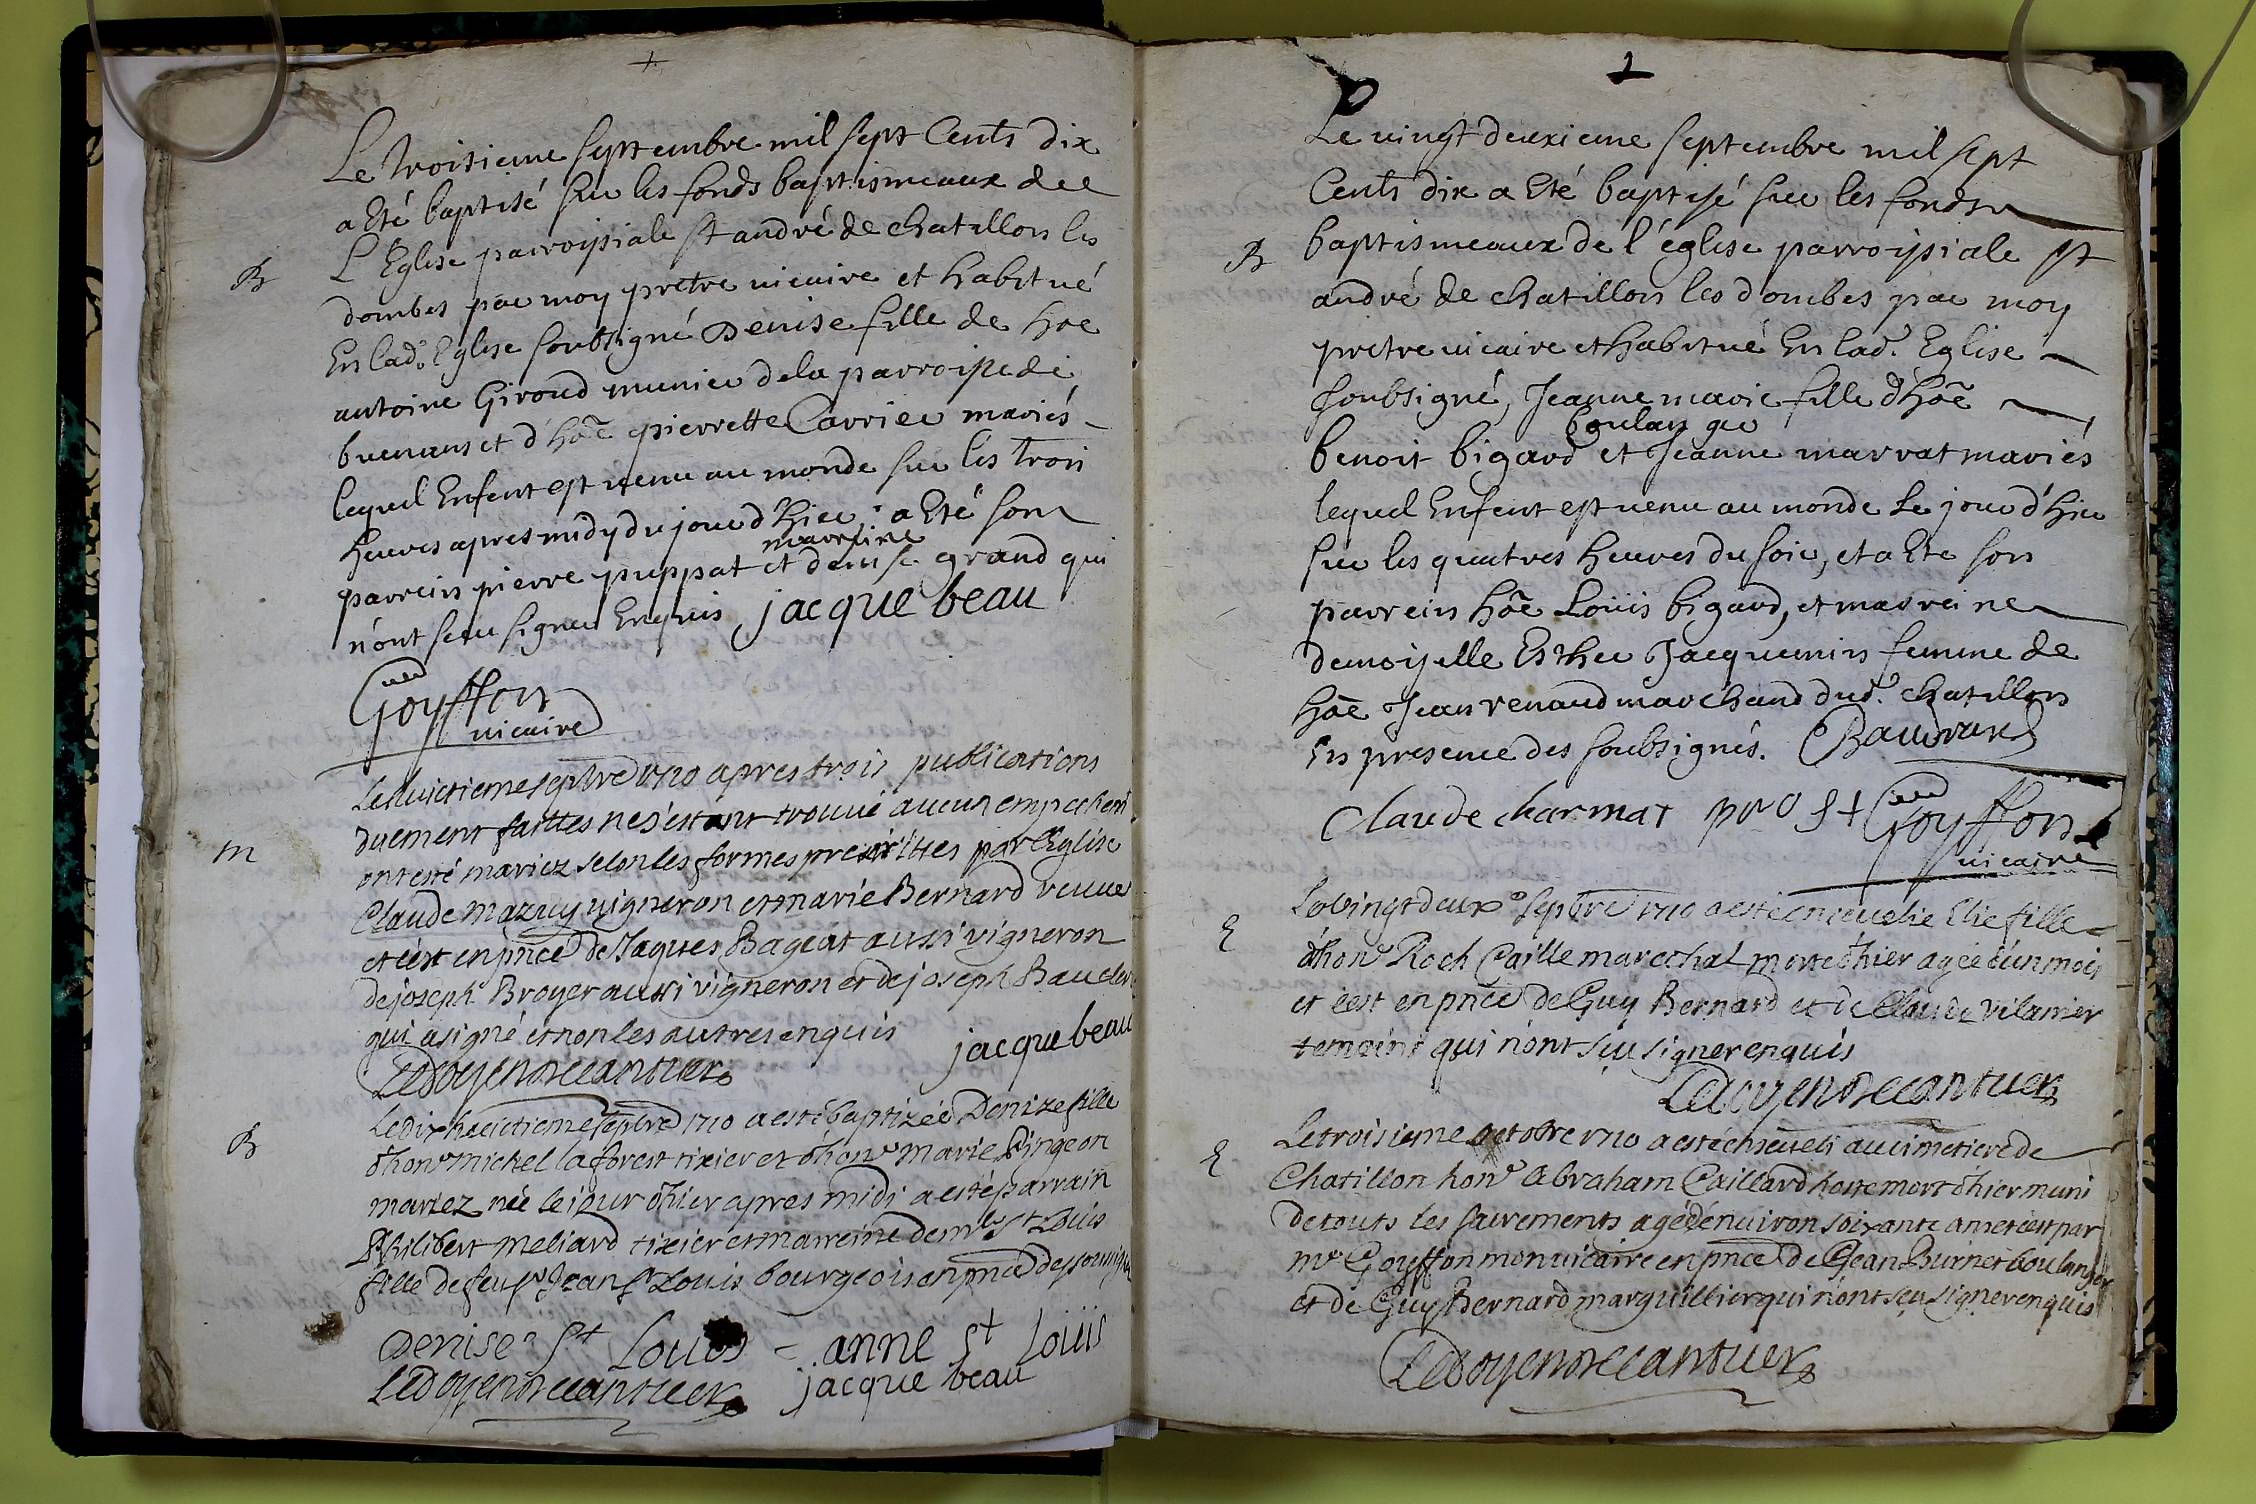 +
Le troisieme septembre mil sept Cents dix
a Eté baptisé sur les fonds baptismeaux de
L'Eglise parroissiale st andré de chatillon les
B
dombes par moy pretre vicaire et habitué
En lad.e Eglise soubsigné Denise fille de hoe
antoine Giroud munier de la parroisse de
buenans et d'hoe pierrette Carrier mariés
lequel Enfent est venu au monde sur les trois
heures apres midy du jour d'hier; a Eté son
marreine
parrein pierre puppat et denise grand qui
n'ont sceu signer Enquis jacque beau
Goyffon
vicaire
Le huictieme septbre 1710 apres trois publications
duement faittes ne s'estant trouvé aucun empechemt
m
ont esté mariez selon les formes prescrittes par l'Eglise
Claude Mazuy vigneron et marie Bernard veuve
et c'est en pnce de Jaques Bageat aussi vigneron
de joseph Broyer aussi vigneron et de joseph Bauder
qui a signé et non les autres enquis jacque beau
Ledoyen Decantuer
Le dix huictieme septbre 1710 a esté baptizée Denize fille
B
d'hon.e michel laforest tixier et d'hon.e Marie Pingeon
mariez née le jour d'hier apres midi a esté parrain
Philibert Meliard tixier et marreine dem.lle St Louis
fille de feu sr Jean St Louis bourgeois en pnce des soussignez
Denise St Louis – anne st Loüis
Ledoyen Decantuer jacque beau
+
Le vingt deuxieme septembre mil sept
Cents dix a Eté baptisé sur les fonds
B
baptismeaux de l'église parroissiale st
andré de chatillon les dombes par moy
pretre vicaire et habitué En lad.e Eglise
soubsigné, Jeanne marie fille d'hoe
boulanger
benoit bigard et Jeanne marrat mariés
lequel Enfent est venu au monde Le jour d'hier
sur les quatres heures du soir, et a Ete son
parrein hoe Loüis bigard, et marreine
demoiselle Esther Jacquemin femme de
hoe Jean renaud marchand dud.t chatillon
En presence des soubsignés. Baudrand
Claude charmat pro st Goyffon
vicaire
Le vingt deux.e septbre 1710 a esté ensevelie Elie fille
E
d'hon.e Roch Caille marechal morte d'hier agée d'un mois
et c'est en pnce de Guy Bernard et de Claude vilanier
temoins qui n'ont sçu signer enquis
Ledoyen Decantuer
Le troisieme octobre 1710 a esté enseveli au cimetiere de
E
Chatillon hon.e Abraham Caillard hoste mort d'hier muni
de touts les sacrements agé d'environ soixante ans et c'est par
mr Goyffon mon vicaire en pnce de Jean Burnet boulanger
et de Guy Bernard marguillier qui n'ont sçu signer enquis
Ledoyen Decantuer